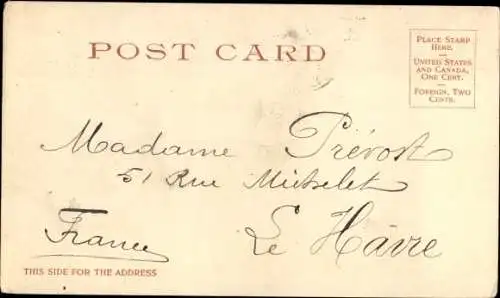 POST CARD
PLACE STAMP
HERE.
UNITED STATES
AND CANADA,
ONE CENT.
FOREIGN, TWO
CENTS.
Madame Prévost
51 Rue Michelet
Le Hâvre
France
THIS SIDE FOR THE ADDRESS